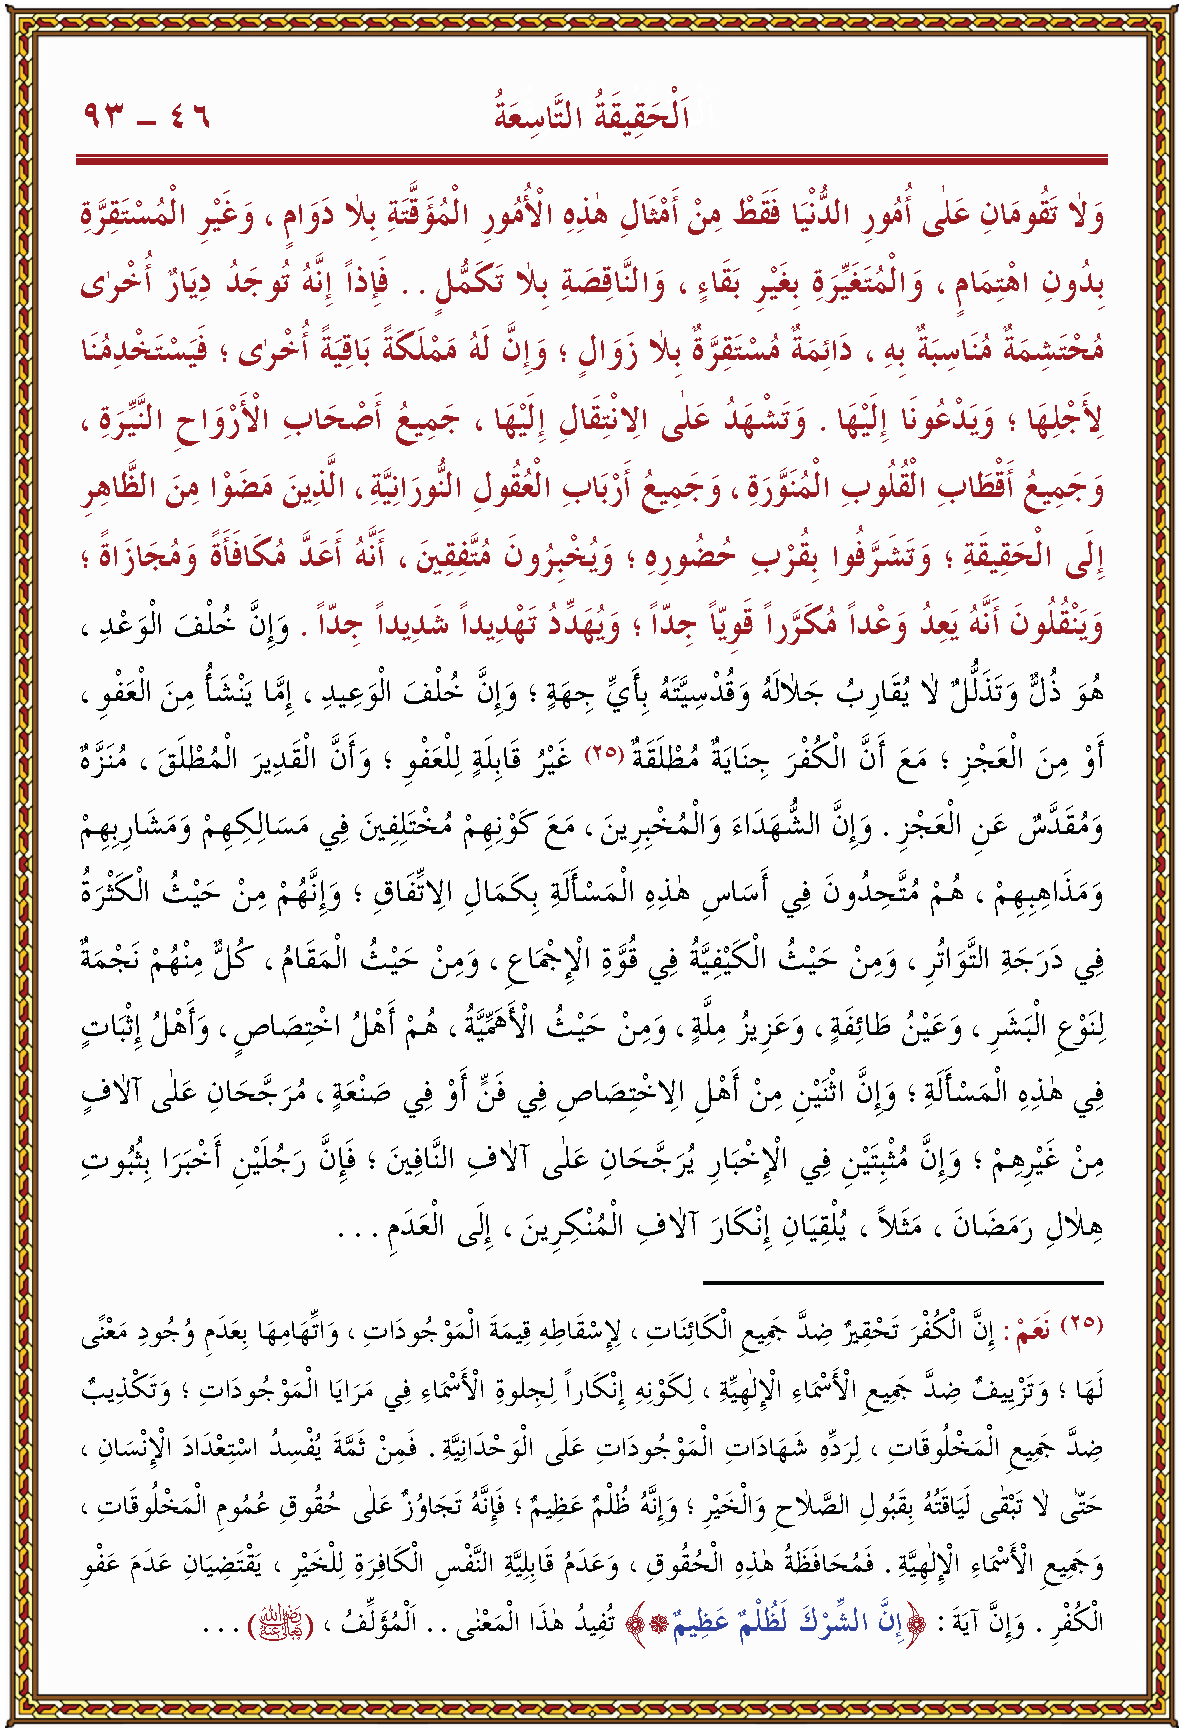 اَلْحَقِيقَةُ التَّاسِعَةُ ٤٦ – ٩٣
وَلاٰ تَقُومَانِ عَلٰى أُمُورِ الدُّنْيَا فَقَطْ مِنْ أَمْثَالِ هٰذِهِ الْأُمُورِ الْمُؤَقَّتَةِ بِلاٰ دَوَامٍ ، وَغَيْرِ الْمُسْتَقِرَّةِ
بِدُونِ اهْتِمَامٍ ، وَالْمُتَغَيِّرَةِ بِغَيْرِ بَقَاءٍ ، وَالنَّاقِصَةِ بِلاٰ تَكَمُّلٍ . . فَإِذاً إِنَّهُ تُوجَدُ دِيَارٌ أُخْرٰى
مُحْتَشِمَةٌ مُنَاسِبَةٌ بِهِ ، دَائِمَةٌ مُسْتَقِرَّةٌ بِلاٰ زَوَالٍ ؛ وَإِنَّ لَهُ مَمْلَكَةً بَاقِيَةً أُخْرٰى ؛ فَيَسْتَخْدِمُنَا
لِأَجْلِهَا ؛ وَيَدْعُونَا إِلَيْهَا . وَتَشْهَدُ عَلٰى الِانْتِقَالِ إِلَيْهَا ، جَمِيعُ أَصْحَابِ الْأَرْوَاحِ النَّيِّرَةِ ،
وَجَمِيعُ أَقْطَابِ الْقُلُوبِ الْمُنَوَّرَةِ ، وَجَمِيعُ أَرْبَابِ الْعُقُولِ النُّورَانِيَّةِ ، الَّذِينَ مَضَوْا مِنَ الظَّاهِرِ
إِلَى الْحَقِيقَةِ ؛ وَتَشَرَّفُوا بِقُرْبِ حُضُورِهِ ؛ وَيُخْبِرُونَ مُتَّفِقِينَ ، أَنَّهُ أَعَدَّ مُكَافَأَةً وَمُجَازَاةً ؛
وَيَنْقُلُونَ أَنَّهُ يَعِدُ وَعْداً مُكَرَّراً قَوِيّاً جِدّاً ؛ وَيُهَدِّدُ تَهْدِيداً شَدِيداً جِدّاً . وَإِنَّ خُلْفَ الْوَعْدِ ،
هُوَ ذُلٌّ وَتَذَلُّلٌ لاٰ يُقَارِبُ جَلاٰلَهُ وَقُدْسِيَّتَهُ بِأَيِّ جِهَةٍ ؛ وَإِنَّ خُلْفَ الْوَعِيدِ ، إِمَّا يَنْشَأُ مِنَ الْعَفْوِ ،
أَوْ مِنَ الْعَجْزِ ؛ مَعَ أَنَّ الْكُفْرَ جِنَايَةٌ مُطْلَقَةٌ (٢٥) غَيْرُ قَابِلَةٍ لِلْعَفْوِ ؛ وَأَنَّ الْقَدِيرَ الْمُطْلَقَ ، مُنَزَّهٌ
وَمُقَدَّسٌ عَنِ الْعَجْزِ . وَإِنَّ الشُّهَدَاءَ وَالْمُخْبِرِينَ ، مَعَ كَوْنِهِمْ مُخْتَلِفِينَ فِي مَسَالِكِهِمْ وَمَشَارِبِهِمْ
وَمَذَاهِبِهِمْ ، هُمْ مُتَّحِدُونَ فِي أَسَاسِ هٰذِهِ الْمَسْأَلَةِ بِكَمَالِ الِاتِّفَاقِ ؛ وَإِنَّهُمْ مِنْ حَيْثُ الْكَثْرَةُ
فِي دَرَجَةِ التَّوَاتُرِ ، وَمِنْ حَيْثُ الْكَيْفِيَّةُ فِي قُوَّةِ الْإِجْمَاعِ ، وَمِنْ حَيْثُ الْمَقَامُ ، كُلٌّ مِنْهُمْ نَجْمَةٌ
لِنَوْعِ الْبَشَرِ ، وَعَيْنُ طَائِفَةٍ ، وَعَزِيزُ مِلَّةٍ ، وَمِنْ حَيْثُ الْأَهَمِّيَّةُ ، هُمْ أَهْلُ اخْتِصَاصٍ ، وَأَهْلُ إِثْبَاتٍ
فِي هٰذِهِ الْمَسْأَلَةِ ؛ وَإِنَّ اثْنَيْنِ مِنْ أَهْلِ الِاخْتِصَاصِ فِي فَنٍّ أَوْ فِي صَنْعَةٍ ، مُرَجَّحَانِ عَلٰى آلاٰفٍ
مِنْ غَيْرِهِمْ ؛ وَإِنَّ مُثْبِتَيْنِ فِي الْإِخْبَارِ يُرَجَّحَانِ عَلٰى آلاٰفِ النَّافِينَ ؛ فَإِنَّ رَجُلَيْنِ أَخْبَرَا بِثُبُوتِ
هِلاٰلِ رَمَضَانَ ، مَثَلاً ، يُلْقِيَانِ إِنْكَارَ آلاٰفِ الْمُنْكِرِينَ ، إِلَى الْعَدَمِ . . .
(٢٥) نَعَمْ : إِنَّ الْكُفْرَ تَحْقِيرٌ ضِدَّ جَمِيعِ الْكَائِنَاتِ ، لِإِسْقَاطِهِ قِيمَةَ الْمَوْجُودَاتِ ، وَاتِّهَامِهَا بِعَدَمِ وُجُودِ مَعْنًى
لَهَا ؛ وَتَزْيِيفٌ ضِدَّ جَمِيعِ الْأَسْمَاءِ الْإِلٰهِيَّةِ ، لِكَوْنِهِ إِنْكَاراً لِجِلْوَةِ الْأَسْمَاءِ فِي مَرَايَا الْمَوْجُودَاتِ ؛ وَتَكْذِيبٌ
ضِدَّ جَمِيعِ الْمَخْلُوقَاتِ ، لِرَدِّهِ شَهَادَاتِ الْمَوْجُودَاتِ عَلَى الْوَحْدَانِيَّةِ . فَمِنْ ثَمَّةَ يُفْسِدُ اسْتِعْدَادَ الْإِنْسَانِ ،
حَتّٰى لاٰ تَبْقٰى لَيَاقَتُهُ بِقَبُولِ الصَّلاٰحِ وَالْخَيْرِ ؛ وَإِنَّهُ ظُلْمٌ عَظِيمٌ ؛ فَإِنَّهُ تَجَاوُزٌ عَلٰى حُقُوقِ عُمُومِ الْمَخْلُوقَاتِ ،
وَجَمِيعِ الْأَسْمَاءِ الْإِلٰهِيَّةِ . فَمُحَافَظَةُ هٰذِهِ الْحُقُوقِ ، وَعَدَمُ قَابِلِيَّةِ النَّفْسِ الْكَافِرَةِ لِلْخَيْرِ ، يَقْتَضِيَانِ عَدَمَ عَفْوِ
الْكُفْرِ . وَإِنَّ آيَةَ : ﴿إِنَّ الشِّرْكَ لَظُلْمٌ عَظِيمٌ ❁﴾ تُفِيدُ هٰذَا الْمَعْنٰى . . اَلْمُؤَلِّفُ ، (رَضِيَ اللّٰهُ تَعَالٰى عَنْهُ) . . .